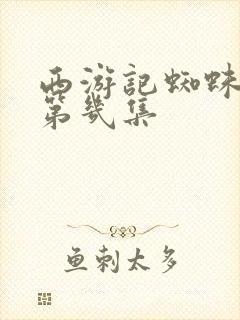 西游记蜘蛛
第几集
鱼刺太多